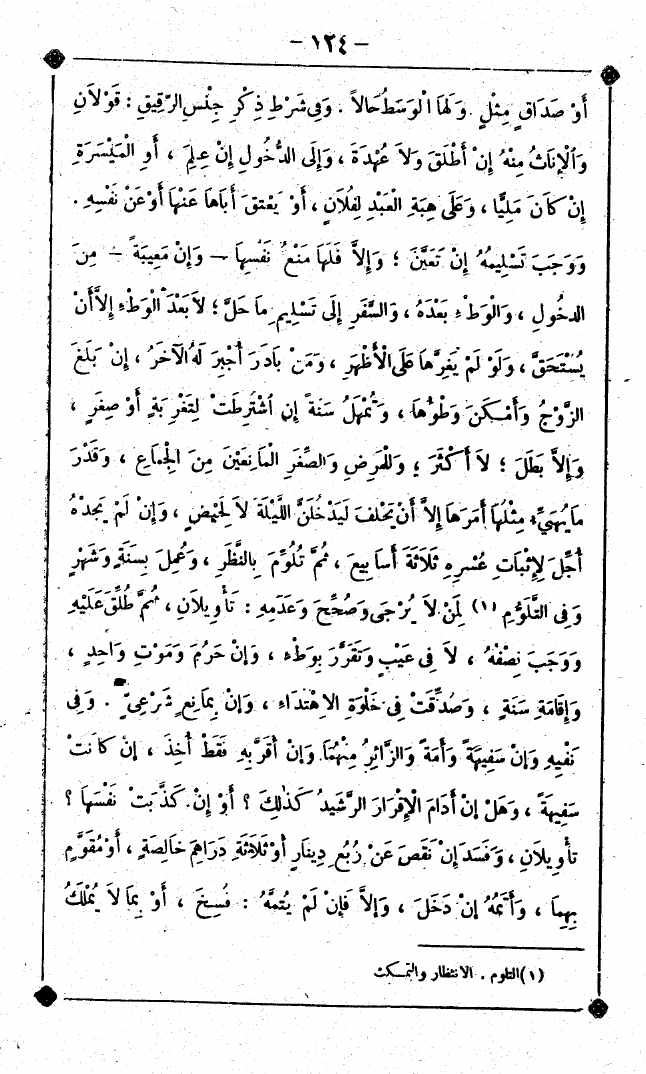 – ١٢٤ –
أَوْ صَدَاقٍ مِثْلٍ. وَلَهَا الْوَسَطُ حَالاً. وَفِى شَرْطِ ذِكْرِ جِنْسِ الرَّقِيقِ : قَوْلاَنِ
وَالْإِنَاثُ مِنْهُ إِنْ أَطْلَقَ وَلاَ عُهْدَةَ ، وَإِلَى الدُّخُولِ إِنْ عُلِمَ ، أَوِ الْمَيْسَرَةِ
إِنْ كَانَ مَلِيًّا ، وَعَلَى هِبَةِ الْعَبْدِ لِفُلاَنٍ ، أَوْ يَعْتِقَ أَبَاهَا عَنْهَا أَوْ عَنْ نَفْسِهِ .
وَوَجَبَ تَسْلِيمُهُ إِنْ تَعَيَّنَ ؛ وَإِلاَّ فَلَهَا مَنْعُ نَفْسِهَا – وَإِنْ مَعِيبَةً – مِنَ
الدخُولِ ، وَالْوَطْءِ بَعْدَهُ ، وَالسَّفَرِ إِلَى تَسْلِيمِ مَا حَلَّ ؛ لاَ بَعْدَ الْوَطْءِ إِلاَّ أَنْ
يُسْتَحَقَّ ، وَلَوْ لَمْ يَغُرَّهَا عَلَى الْأَظْهَرِ ، وَمَنْ بَادَرَ أُجْبِرَ لَهُ الآخَرُ ، إِنْ بَلَغَ
الزَّوْجُ وَأَمْكَنَ وَطْؤُهَا ، وَتُمْهَلُ سَنَةً إِنِ اشْتُرِطَتْ لِتَغْرِبَةٍ أَوْ صِغَرٍ ،
وَإِلاَّ بَطَلَ ؛ لاَ أَكْثَرَ ؛ وَلِلْمَرَضِ وَالصِّغَرِ الْمَانِعَيْنِ مِنَ الْجِمَاعِ ، وَقَدْرَ
مَا يُهَيِّءُ مِثْلُهَا أَمْرَهَا إِلاَّ أَنْ يَحْلِفَ لَيَدْخُلَنَّ اللَّيْلَةَ لاَ لِحَيْضٍ ، وَإِنْ لَمْ يَجِدْهُ
أُجِّلَ لِإِثْبَاتِ عُسْرِهِ ثَلاَثَةَ أَسَابِيعَ ، ثُمَّ تُلُوِّمَ بِالنَّظَرِ ، وَعُمِلَ بِسَنَةٍ وَشَهْرٍ
وَفِى التَّلَوُّمِ (١) لِمَنْ لاَ يُرْجَى وَصُحِّحَ وَعَدَمِهِ : تَأْوِيلاَنِ ، ثُمَّ طُلِّقَ عَلَيْهِ
وَوَجَبَ نِصْفُهُ ، لاَ فِى عَيْبٍ وَتَقَرَّرَ بِوَطْءٍ ، وَإِنْ حَرُمَ وَمَوْتِ وَاحِدٍ ،
وَإِقَامَةِ سَنَةٍ ، وَصُدِّقَتْ فِى خَلْوَةِ الاِهْتِدَاءِ ، وَإِنْ بِمَانِعٍ شَرْعِىٍّ . وَفِى
نَفْيِهِ وَإِنْ سَفِيهَةً وَأَمَةً وَالزَّائِرُ مِنْهُمَا وَإِنْ أَقَرَّ بِهِ فَقَطْ أُخِذَ ، إِنْ كَانَتْ
سَفِيهَةً ، وَهَلْ إِنْ أَدَامَ الْإِقْرَارَ الرَّشِيدُ كَذٰلِكَ ؟ أَوْ إِنْ كَذَّبَتْ نَفْسَهَا ؟
تَأْوِيلاَنِ ، وَفَسَدَ إِنْ نَقَصَ عَنْ رُبُعِ دِينَارٍ أَوْ ثَلاَثَةِ دَرَاهِمَ خَالِصَةٍ ، أَوْ مُقَوَّمٍ
بِهِمَا ، وَأَتَمَّهُ إِنْ دَخَلَ ، وَإِلاَّ فَإِنْ لَمْ يُتِمَّهُ : فُسِخَ ، أَوْ بِمَا لاَ يُمْلَكُ
(١) التلوم . الانتظار والتمكث